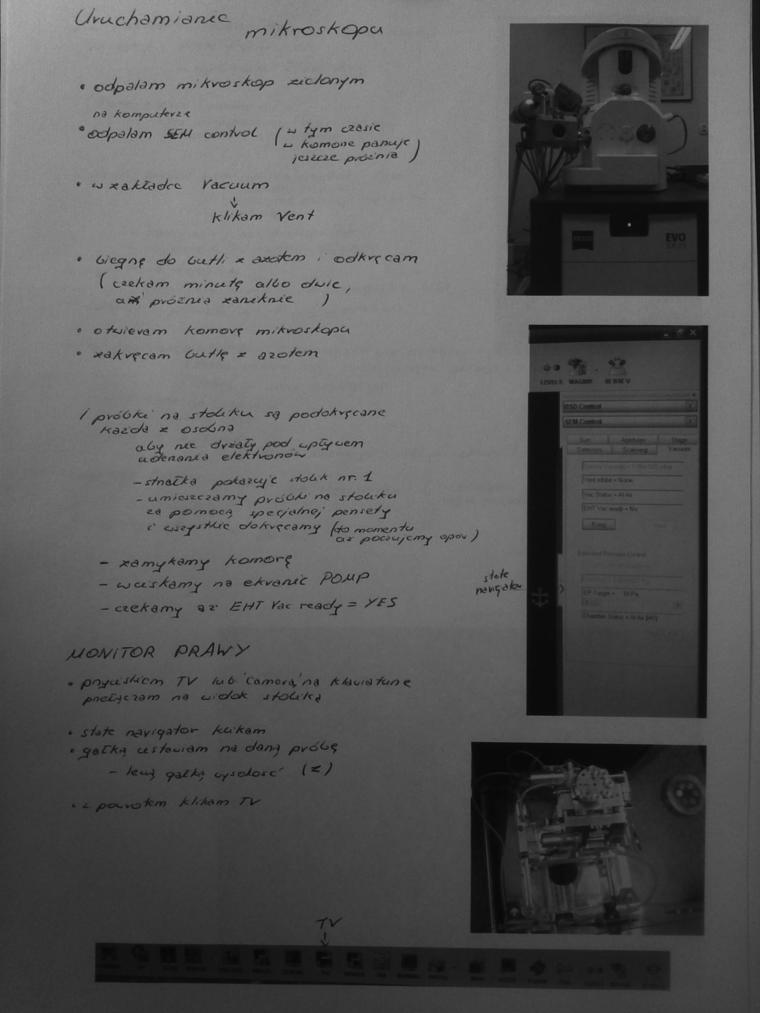 Uruchamianie mikroskopu
• odpalam mikroskop zielonym
na komputerze
• odpalam SEM control (w tym czasie
w komorze panuje
jeszcze próżnia)
• w zakładce Vacuum
↓
klikam Vent
• biegnę do butli z azotem i odkręcam
(czekam minutę albo dwie,
aż próżnia zaniknie)
• otwieram komorę mikroskopu
• zakręcam butlę z azotem
/ próbki na stoliku są podokręcane
każda z osobna
aby nie drżały pod wpływem
uderzania elektronów
- strzałka pokazuje stolik nr. 1
- umieszczamy próbki na stoliku
za pomocą specjalnej pensety
i wszystkie dokręcamy (do momentu
aż poczujemy opór)
- zamykamy komorę
- wciskamy na ekranie PUMP
- czekamy aż EHT Vac ready = YES
state
navigator
MONITOR PRAWY
• przyciskiem TV lub 'camera' na klawiaturze
przełączam na widok stolika
• state navigator klikam
• gałką ustawiam na daną próbę
- lewą gałką wysokość (z)
• z powrotem klikam TV
TV
↓
EVO
SEM Control
Vacuum
EHT Vac ready = No
Pump